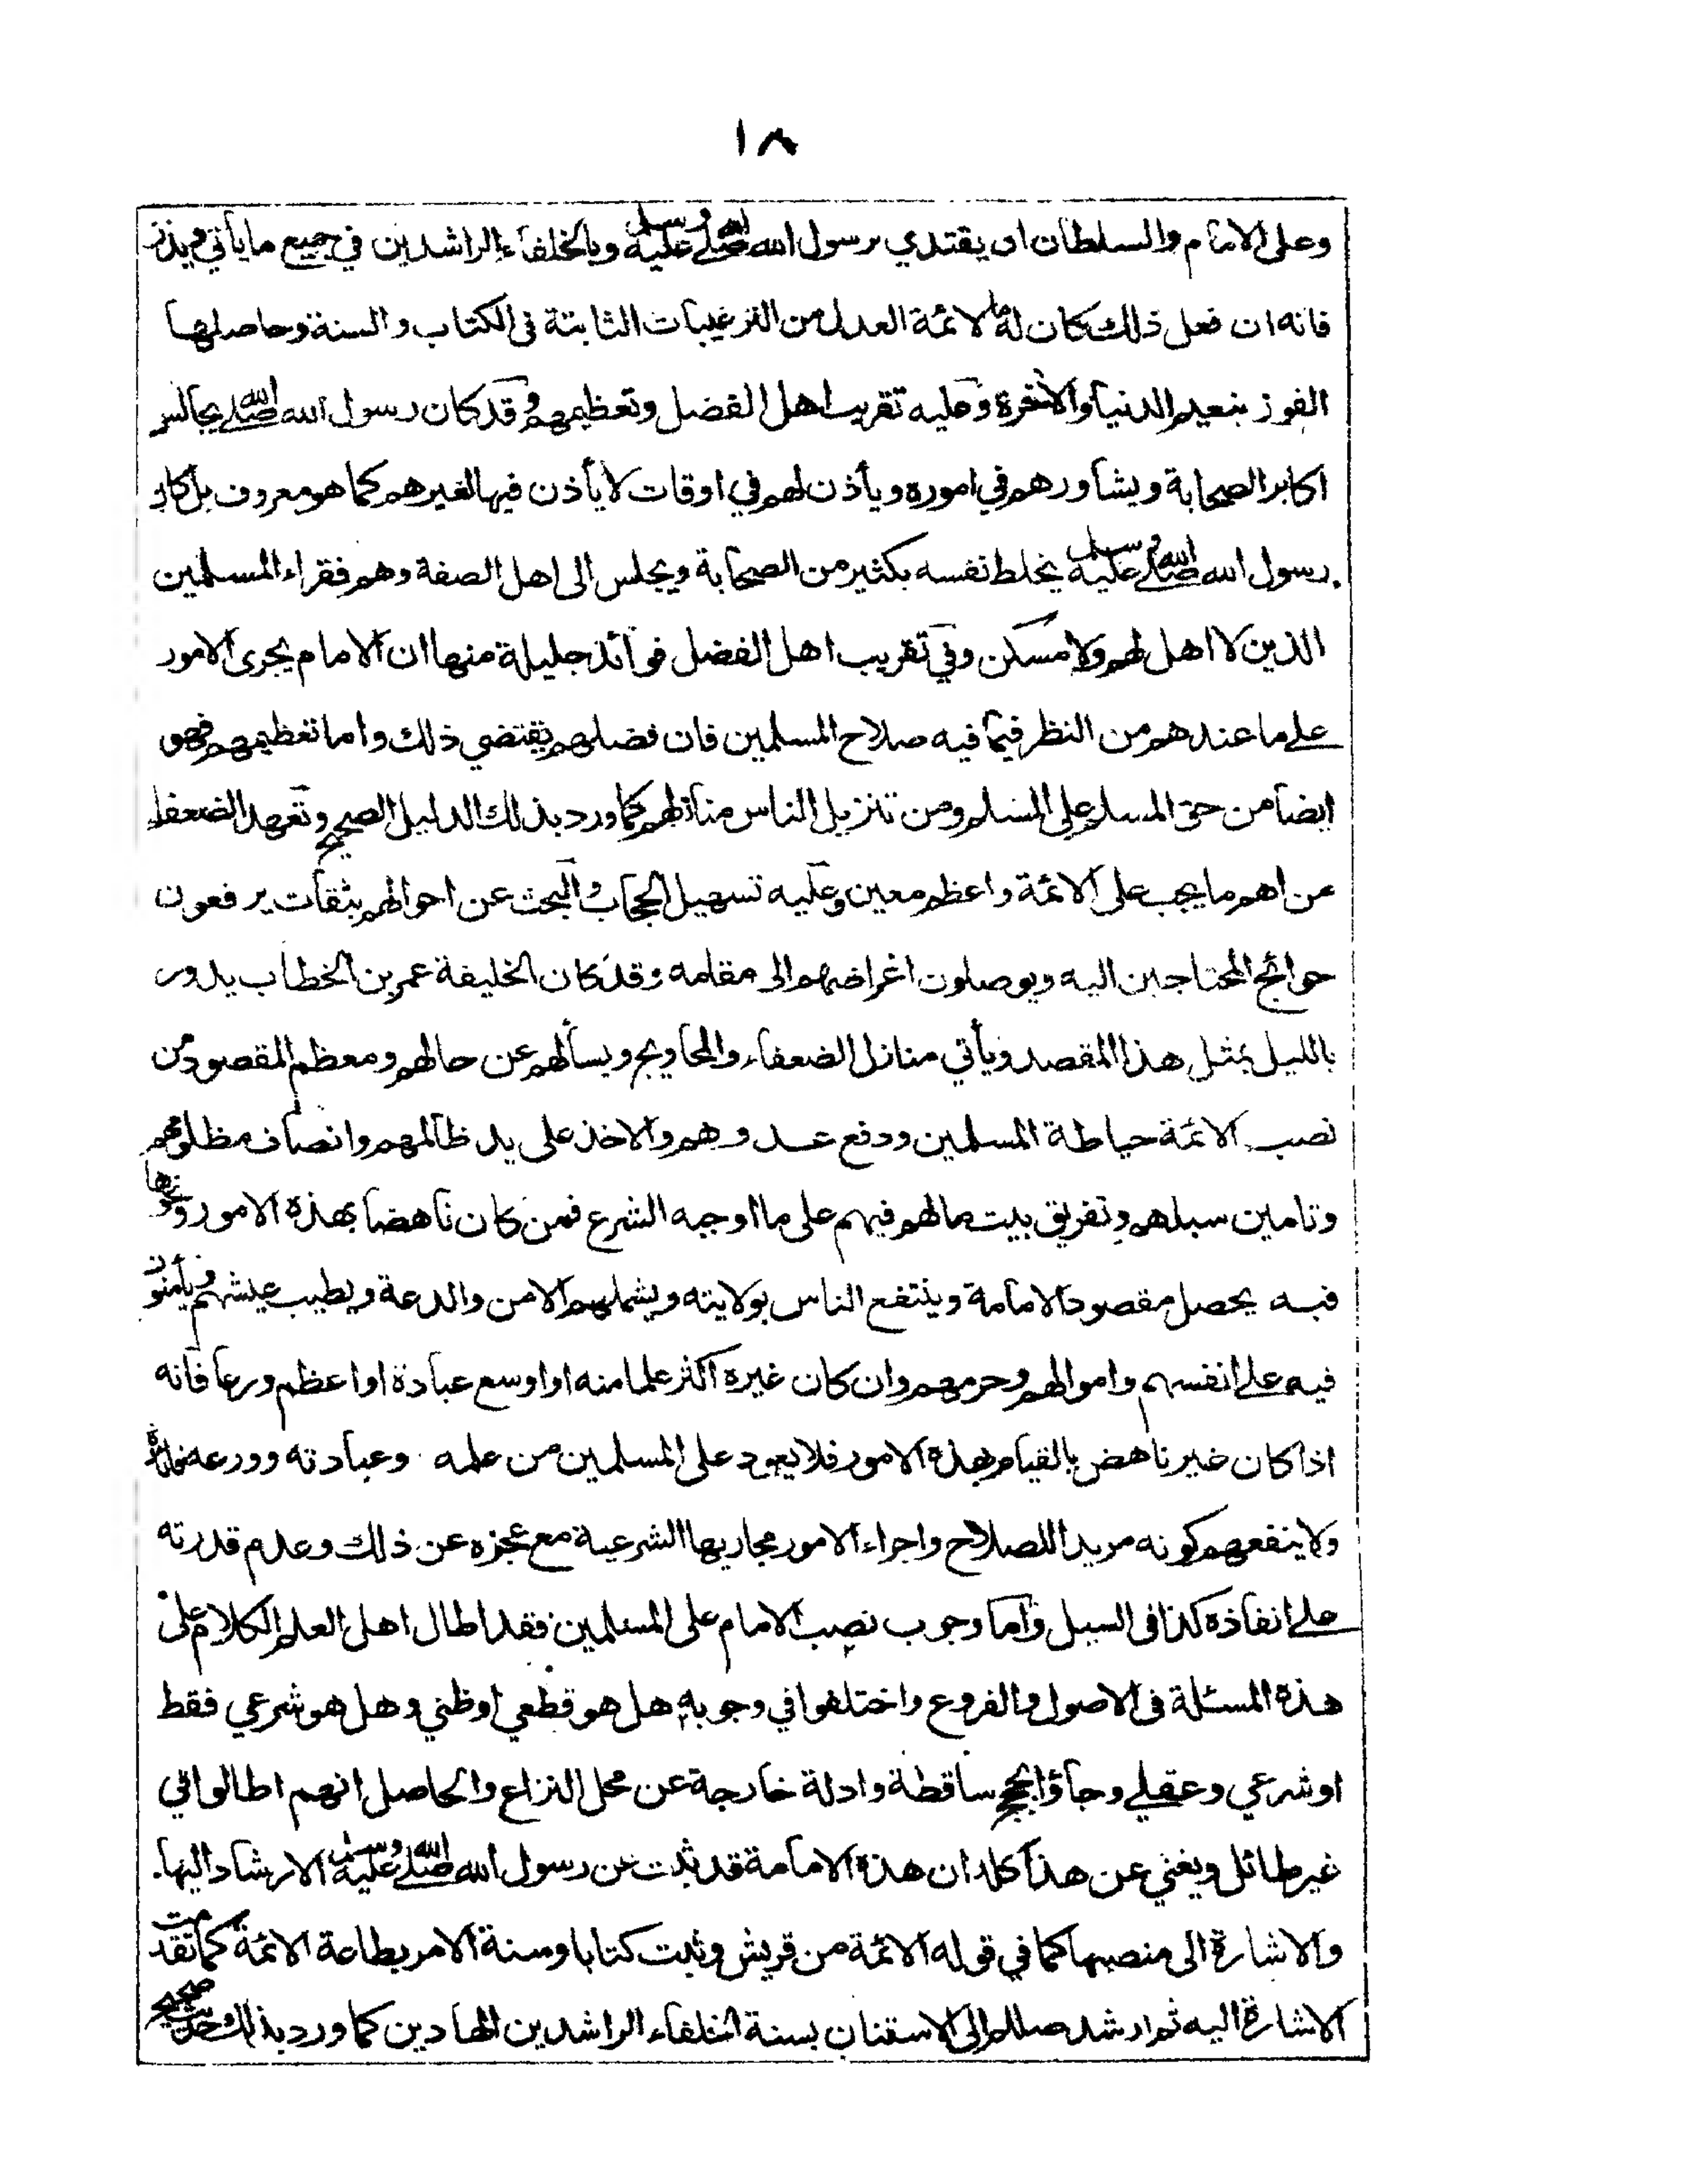 ١٨
وعلى الامام والسلطان ان يقتدي برسول الله صلى الله عليه وسلم وبالخلفاء الراشدين في جميع ما يأتي ويذر
فانه ان فعل ذلك كان له ما لائمة العدل من الترغيبات الثابتة في الكتاب والسنة وحاصلها
الفوز بنعيم الدنيا والآخرة وعليه تقريب اهل الفضل وتعظيمهم وقد كان رسول الله صلى الله يجالس
اكابر الصحابة ويشاورهم في اموره ويأذن لهم في اوقات لا يأذن فيها لغيرهم كما هو معروف بل كان
رسول الله صلى الله عليه وسلم يخلط نفسه بكثير من الصحابة ويجلس الى اهل الصفة وهم فقراء المسلمين
الذين لا اهل لهم ولا مسكن وفي تقريب اهل الفضل فوائد جليلة منها ان الامام يجرى الامور
على ما عندهم من النظر فيما فيه صلاح المسلمين فان فضلهم يقتضي ذلك واما تعظيمهم فهو
ايضا من حق المسلم على المسلم ومن تنزيل الناس منازلهم كما ورد بذلك الدليل الصحيح وتعهد الضعفاء
من اهم ما يجب على الائمة واعظم معين وعليه تسهيل الحجاب والبحث عن احوالهم بثقات يرفعون
حوائج المحتاجين اليه ويوصلون اغراضهم الى مقامه وقد كان الخليفة عمر بن الخطاب يدور
بالليل بمثل هذا المقصد ويأتي منازل الضعفاء والمحاويج ويسألهم عن حالهم ومعظم المقصود من
نصب الائمة حياطة المسلمين ودفع عدوهم والاخذ على يد ظالمهم وانصاف مظلومهم
وتامين سبلهم وتفريق بيت مالهم فيهم على ما اوجبه الشرع فمن كان ناهضا بهذه الامور ونحوها
فبه يحصل مقصود الامامة وينتفع الناس بولايته ويشملهم الامن والدعة ويطيب عيشهم ويأمنون
فيه على انفسهم واموالهم وحرمهم وان كان غيره اكثر علما منه او اوسع عبادة او اعظم ورعا فانه
اذا كان غير ناهض بالقيام بهذه الامور فلا يعود على المسلمين من علمه وعبادته وورعه فائدة
ولا ينفعهم كونه مريدا للصلاح واجراء الامور مجاريها الشرعية مع عجزه عن ذلك وعدم قدرته
على انفاذه كذا في السيل واما وجوب نصب الامام على المسلمين فقد اطال اهل العلم الكلام على
هذه المسئلة في الاصول والفروع واختلفوا في وجوبه هل هو قطعي او ظني وهل هو شرعي فقط
او شرعي وعقلي وجاؤا بحجج ساقطة وادلة خارجة عن محل النزاع والحاصل انهم اطالوا في
غير طائل ويغني عن هذا كله ان هذه الامامة قد ثبت عن رسول الله صلى الله عليه وسلم الارشاد اليها
والاشارة الى منصبها كما في قوله الائمة من قريش وثبت كتابا وسنة الامر بطاعة الائمة كما تقدمت
الاشارة اليه ثم ارشد صللم الى الاستنان بسنة الخلفاء الراشدين الهادين كما ورد بذلك وحديث صحيح